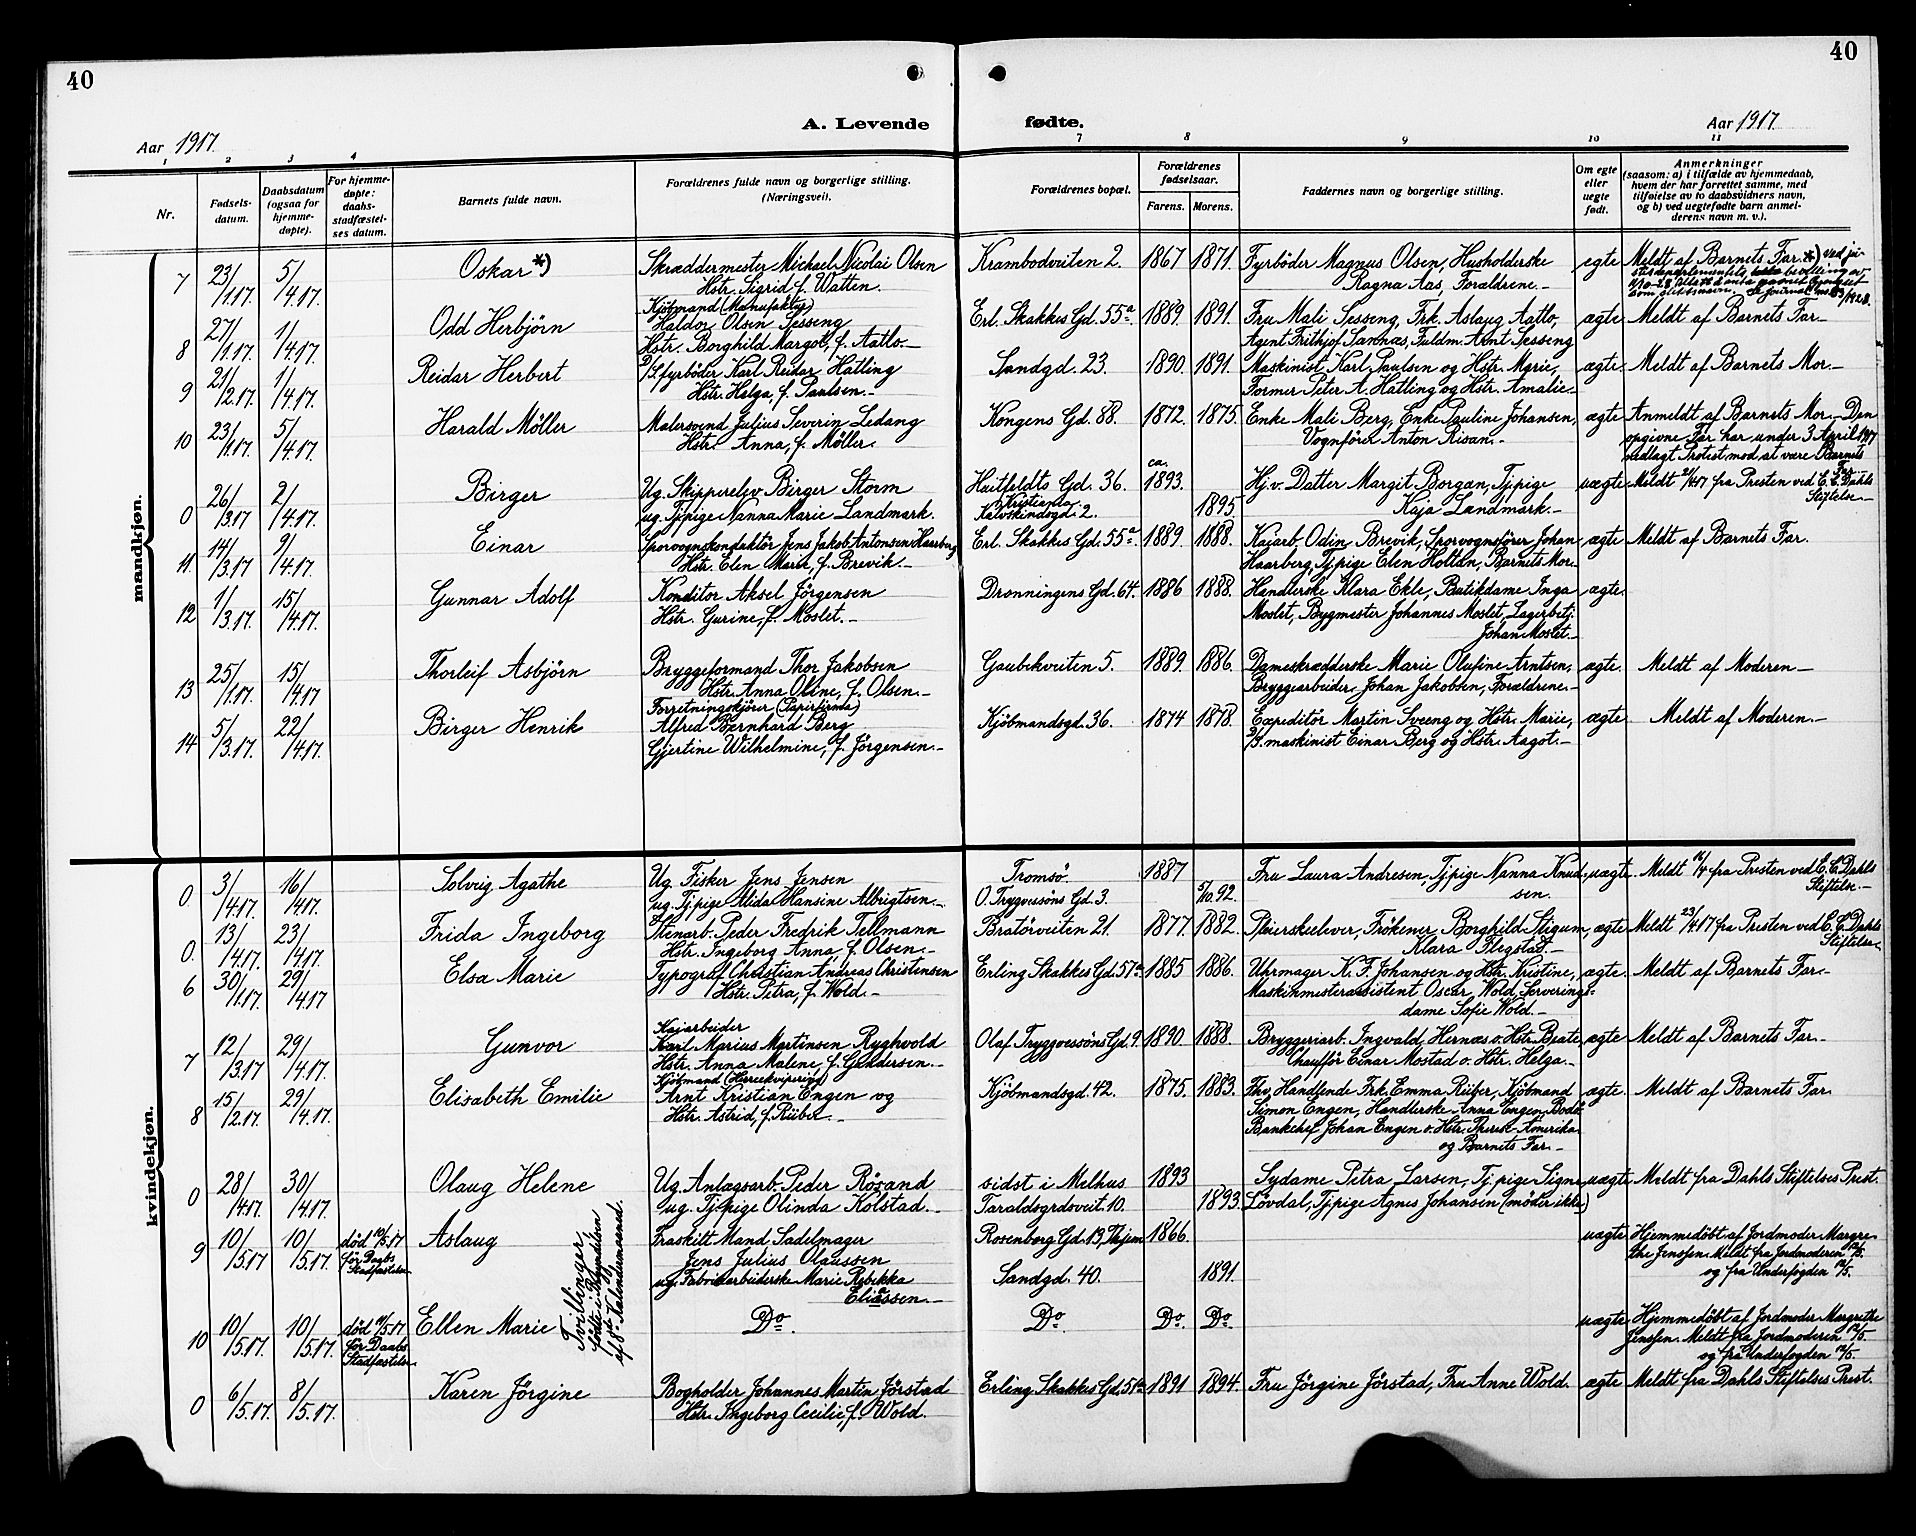 40
40
A. Levende fødte.
Aar 1917.
Aar 1917
1 2 3 4 7 8 9 10 11
Nr.
Fødselsdatum.
Daabsdatum (ogsaa for hjemmedøpte).
For hjemmedøpte: daabsstadfæstelses datum.
Barnets fulde navn.
Forældrenes fulde navn og borgerlige stilling. (Næringsvei).
Forældrenes bopæl.
Forældrenes fødselsaar.
Farens. Morens.
Faddernes navn og borgerlige stilling.
Om egte eller uegte født.
Anmerkninger (saasom: a) i tilfælde av hjemmedaab, hvem der har forrettet samme, med tilføielse av to daabsvidners navn, og b) ved uegtefødte barn anmelderens navn m. v.).
mandkjøn.
7 23/1.17. 5/4.17. Oskar *) Skræddermester Michael Nicolai Olsen Krambodveiten 2. 1867 1871. Fyrbøder Magnus Olsen, Husholderske egte Meldt af Barnets Far *) Ved
Hstr. Sigrid f. Watten. Ragna Aas, Forældrene.-
8 27/1.17. 1/4.17. Odd Herbjörn Kjöbmand (Manufaktur)
Haldor Olsen Sesseng Erl. Skakkes Gd. 55a. 1889. 1891. Fru Mali Sesseng, Frk. Aslaug Aatlo, ægte Meldt af Barnets Far-
Hstr. Borghild Margot, f. Aatlo.- Agent Frithjof Sannæs, Fuldm. Arnt Sesseng
9 21/2.17. 1/4.17. Reidar Herbert D/S.fyrbøder Karl Reidar Hatling Sandgd. 23. 1890. 1891. Maskinist Karl Paulsen og Hstr. Marie, ægte Meldt af Barnets Mor.-
Hstr. Helga, f. Paulsen.- Former Peter A. Hatling og Hstr. Amalie.-
10 23/1.17. 5/4.17. Harald Møller Malersvend Julius Severin Ledang Kongens Gd. 88. 1872. 1875. Enke Mali Berg, Enke Pauline Johansen, ægte Anmeldt af Barnets Mor. Den
Hstr. Anna, f. Møller. Vognfører Anton Risan.- opgivne Far har under 3 April 1917
nedlagt Protest mod at være Barnets Far
0 26/3.17 2/4.17. Birger Ug. Skipperelev Birger Storm Huitfeldts Gd. 36. Kristiania ca. 1893. Hj.v. Datter Margit Borgan, Tjpige uægte Meldt 21/4.17 fra Presten ved E. C. Dahls
ug. Tjpige Nanna Marie Landmark. Kalvskindsgd. 2. 1895 Kaja Landmark.- Stiftelse.-
11. 14/3.17 9/4.17. Einar Sporvognskonduktör Jens Jakob Antonsen Haarberg Erl. Skakkes Gd. 55a. 1889. 1888. Kaiarb. Odin Brevik, Sporvognsfører Johan ægte Meldt af Barnets Far.
Hstr. Elen Marie, f. Brevik.- Haarberg, Tjpige Elen Holtan, Barnets Mor.
12 1/3.17. 15/4.17. Gunnar Adolf Konditor Aksel Jörgensen Dronningens Gd. 64. 1886 1888. Handlerske Klara Ekle, Butikdame Inga ægte.
Hstr. Gurine, f. Moslet.- Moslet, Bygmester Johannes Moslet, Lagerbetj.
Johan Moslet.-
13 25/1.17. 15/4.17 Thorleif Asbjörn Bryggeformand Thor Jakobsen Gaubekveiten 5. 1889. 1886. Dameskrædderske Marie Olufine Arntsen, ægte. Meldt af Moderen-
Hstr. Anna Oline, f. Olsen.- Bryggearbeider Johan Jakobsen, Forældrene.-
14 5/3.17. 22/4.17. Birger Henrik Forretningskjörer (Papirfirma)
Alfred Bernhard Berg Kjöbmandsgd. 36. 1874 1878. Expeditör Martin Sveeng og Hstr. Marie, ægte Meldt af Moderen.-
Gjertine Wilhelmine, f. Jörgensen.- D/S. maskinist Einar Berg og Hstr. Aagot.-
kvindekjøn.
0 3/4.17. 16/4.17. Solvig Agathe Ug. Fisker Jens Jensen Tromsö. 1887 Fru Laura Andresen, Tjpige Nanna Knud- uægte. Meldt 16/4 fra Presten ved E. C. Dahls
ug. Tjpige Alida Hansine Albrigtsen.- O. Trygvesöns Gd. 3. 5/10.92. sen. Stiftelse.-
0. 13/4.17. 23/4.17 Frida Ingeborg Stenarb. Peder Fredrik Tellmann Bratörveiten 21. 1877. 1882. Pleierskelever, Frökener Borghild Stigum ægte Meldt 23/4.17 fra Presten ved E. C. Dahls
Hstr. Ingeborg Anna, f. Olsen.- Klara Flegstad.- Stiftelse
6 30/1.17. 29/4.17 Elsa Marie Typograf Christian Andreas Christensen Erling Skakkes Gd. 57a 1885 1886. Uhrmager K. F. Johansen og Hstr. Kristine, ægte. Meldt af Barnets Far.-
Hstr. Petra, f. Wold.- Maskinmesterassistent Oscar Wold, Serverings-
dame Sofie Wold.-
7 12/3.17 29/4.17. Gunvor Kaiarbeider
Karl Marius Martinsen Ryghvold Olaf Tryggvessöns Gd. 9. 1890 1888. Bryggeriarb. Ingvald Hernæs o. Hstr. Beate ægte Meldt af Barnets Far.-
Hstr. Anna Malene, f. Gundersen.- Chauffør Einar Mostad o. Hstr. Helga.-
8 15/2.17. 29/4.17. Elisabeth Emilie Kjöbmand (Herreekvipering)
Arnt Kristian Engen og Kjöbmandsgd. 42. 1875. 1883. Thv. Handlende Frk. Emma Rüber, Kjöbmand ægte. Meldt af Barnets Far.
Hstr. Astrid, f. Rüber.- Simon Engen, Handlerske Anna Engen Bodö.
Bankchef Johan Engen o. Hstr. Therese-Amerika
og Barnets Far.-
0 28/4.17 30/4.17. Olaug Helene Ug. Anlægsarb. Peder Rösand sidst i Melhus 1893 Sydame Petra Larsen, Tj.pige Signe uægte Meldt fra Dahls Stiftelses Prest.
ug. Tjpige Olinda Kolstad.- Taraldsgrdsveit. 10. 1893. Lövdal, Tjpige Agnes Johansen (möder ikke)
9 10/5.17 10/5.17. död 10/5.17 før Daabs Stadfæstelse Aslaug Fraskilt Mand Sadelmager Rosenborg Gd. 19, Thjem 1866. uægte Hjemmedöbt af Jordmoder Margre-
Jens Julius Olaussen the Jenssen. Meldt fra Jordmoderen 12/5.
ug. Fabrikarbeiderske Marie Rebekka Sandgd. 40. 1891. og fra Underfogden 12/5.
Eliassen.-
Tvillinger,
födte i Begyndelsen
af 8de Kalendermaaned.
10 10/5.17. 10/5.17. död 11/5.17 før Daabs Stadfæstelse Ellen Marie Do. Do. Do. Do. uægte Hjemmedöbt af Jordmoder Margrethe
Jenssen. Meldt fra Jordmoderen 12/5.
og fra Underfogden 12/5.
0 6/5.17. 8/5.17. Karen Jörgine Bogholder Johannes Martin Jörstad Erling Skakkes Gd. 51a 1891 1894. Fru Jörgine Jörstad, Fru Anne Wold. ægte Meldt fra Dahls Stiftelses Prest.
Hstr. Ingeborg Cecilie, f. Wold.